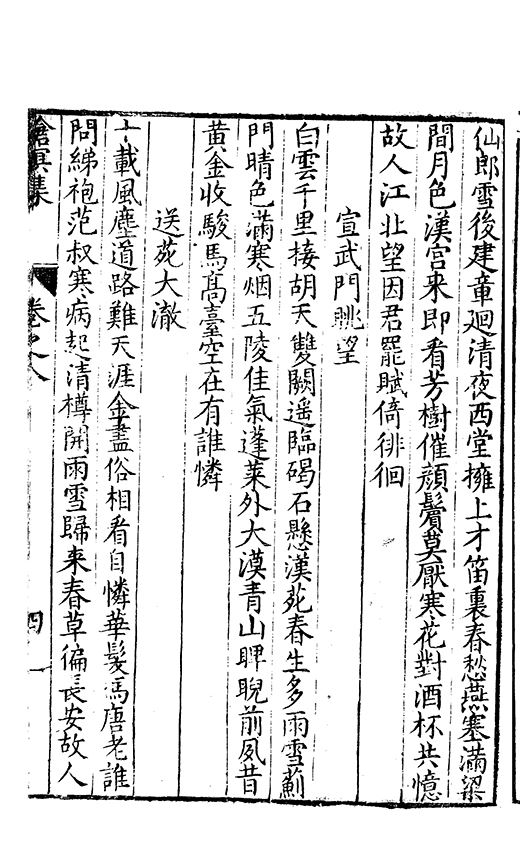 仙郎雪後建章廻清夜西堂擁上才笛裏春愁燕塞滿梁
間月色漢宮來即看芳樹催顔鬢莫厭寒花對酒杯共憶
故人江北望因君罷賦倚徘徊
宣武門眺望
白雲千里接胡天雙闕遥臨碣石懸漢苑春生多雨雪薊
門晴色滿寒烟五陵佳氣蓬萊外大漠青山睥睨前夙昔
黄金收駿馬髙臺空在有誰憐
送苑大澈
十載風塵道路難天涯金盡俗相看自憐華髮馮唐老誰
問綈袍范叔寒病起清樽開雨雪歸来春草徧長安故人
滄溟集
卷之八
四